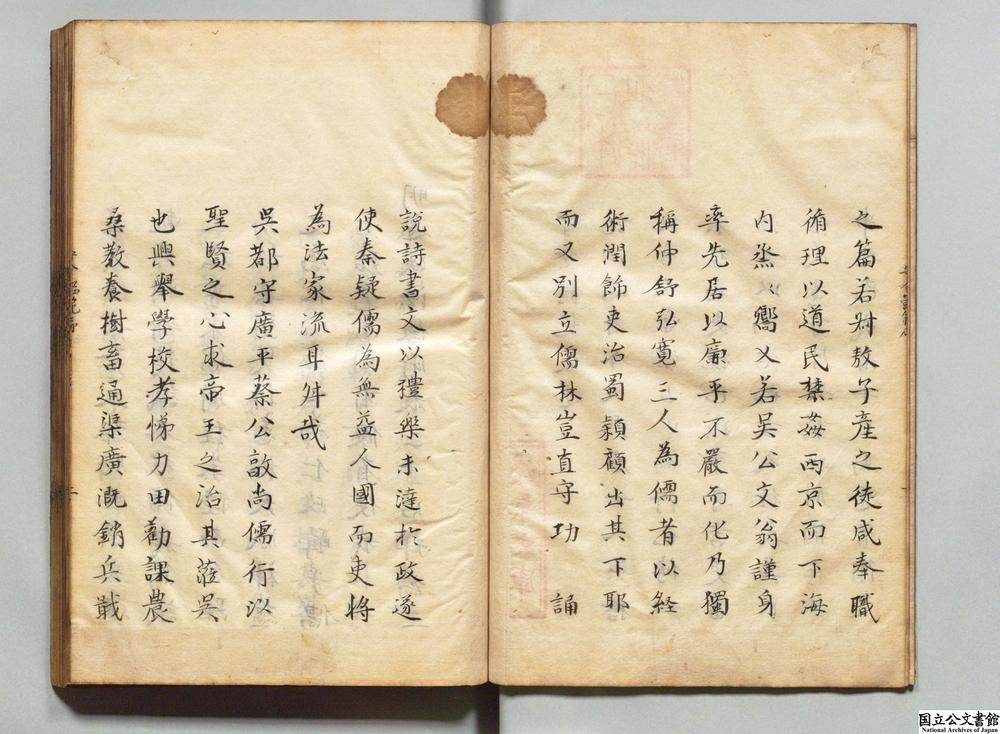 之篇若尉敖子產之徒咸奉職
循理以道民禁姦西京而下海
內烝以嚮乂若吴公文翁謹身
率先居以廉平不嚴而化乃獨
稱仲舒弘寛三人為儒者以経
術潤飾吏治蜀潁顧出其下耶
而又別立儒林豈直守功 誦
說詩書文以禮樂未達於政遂
使秦疑儒為無益人國而吏將
為法家流耳舛哉
吳郡守廣平蔡公敭尚儒行以
聖賢之心求帝王之治其蒞吳
也興舉學校孝悌力田勸課農
桑教養樹畜通渠廣漑銷兵戢
国立公文書館
National Archives of Japan